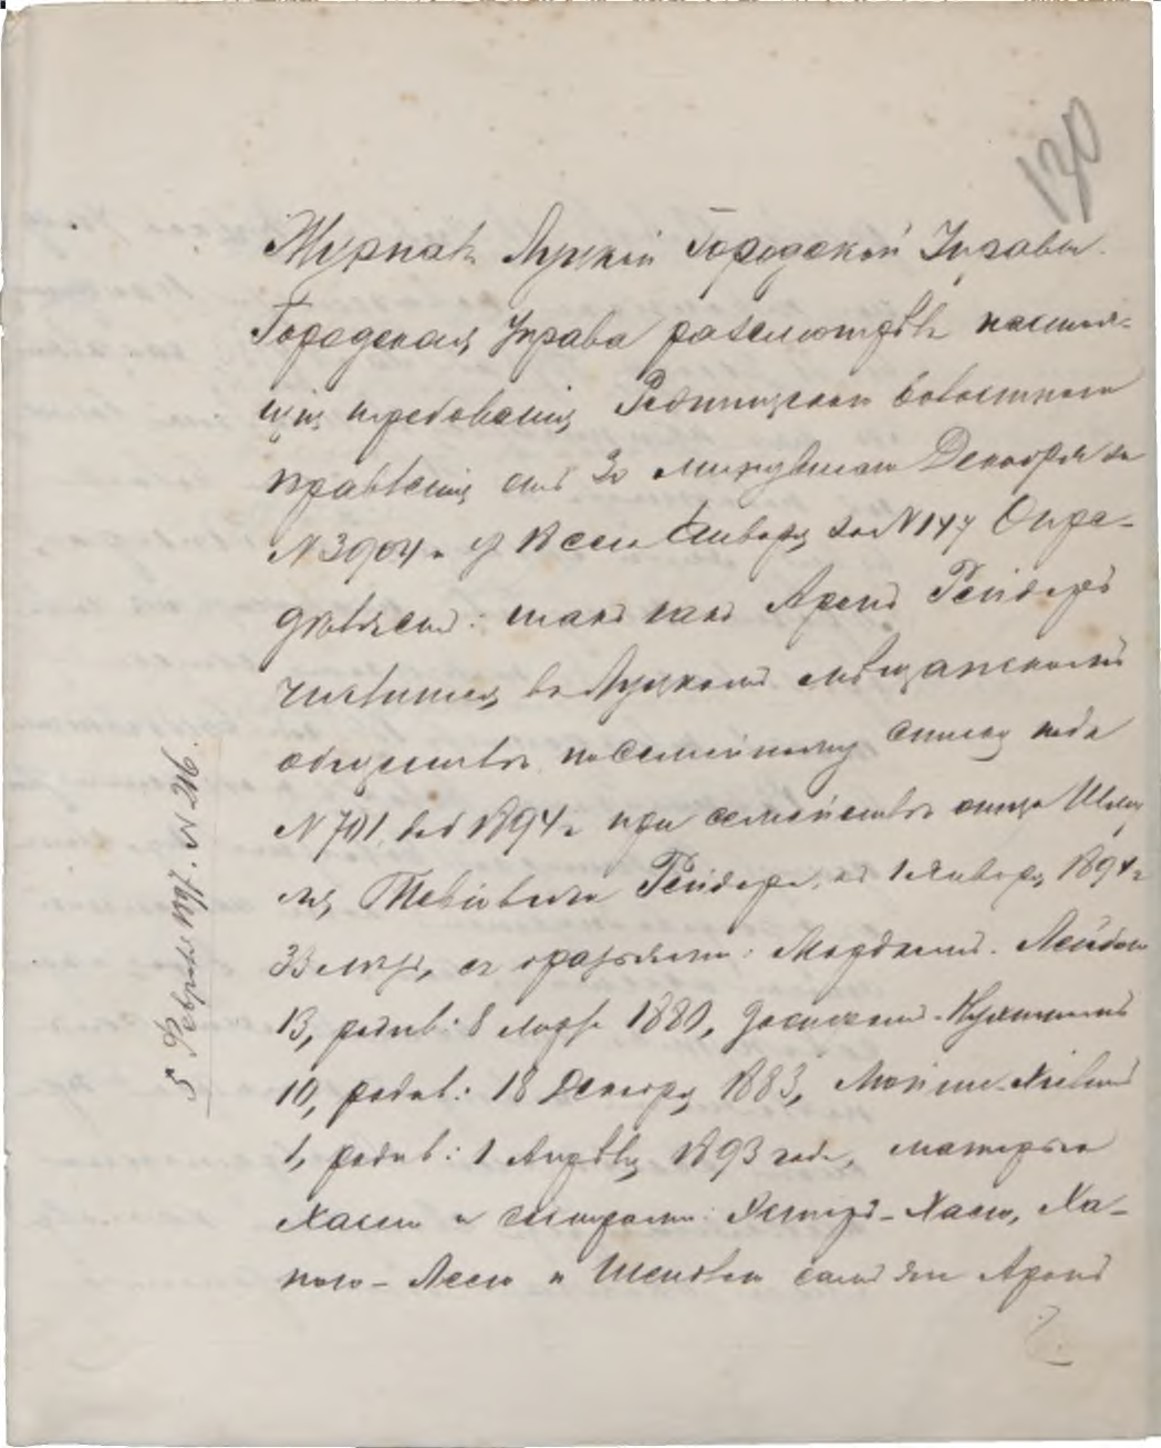 130
Журналъ Луцкой Городской Управы.
Городская Управа разсмотрѣвъ настоя-
щія требованія волостного
правленія отъ 30 минувшаго Декабря за
N 3904 и 18 сего Января за N 147 Опре-
дѣляетъ: такъ какъ Аронъ Гейдеръ
числится въ Луцкомъ мѣщанскомъ
обществѣ по семейному списку подъ
N 701, въ 1894 г. при семействѣ отца
Тевіевича 1 Января 1894 г.
33 лѣтъ, съ братьями: Мордкомъ-Лейбою
13, родив: 8 Марта 1880,
10, родив: 18 Декабря 1883,
1, родив: 1 Апрѣля 1893 года, матерью
Хаею и сестрами: Эстеръ-Хаею, Ха-
ною-Леею и самъ же Аронъ
5 Февраля 1897. N 216.